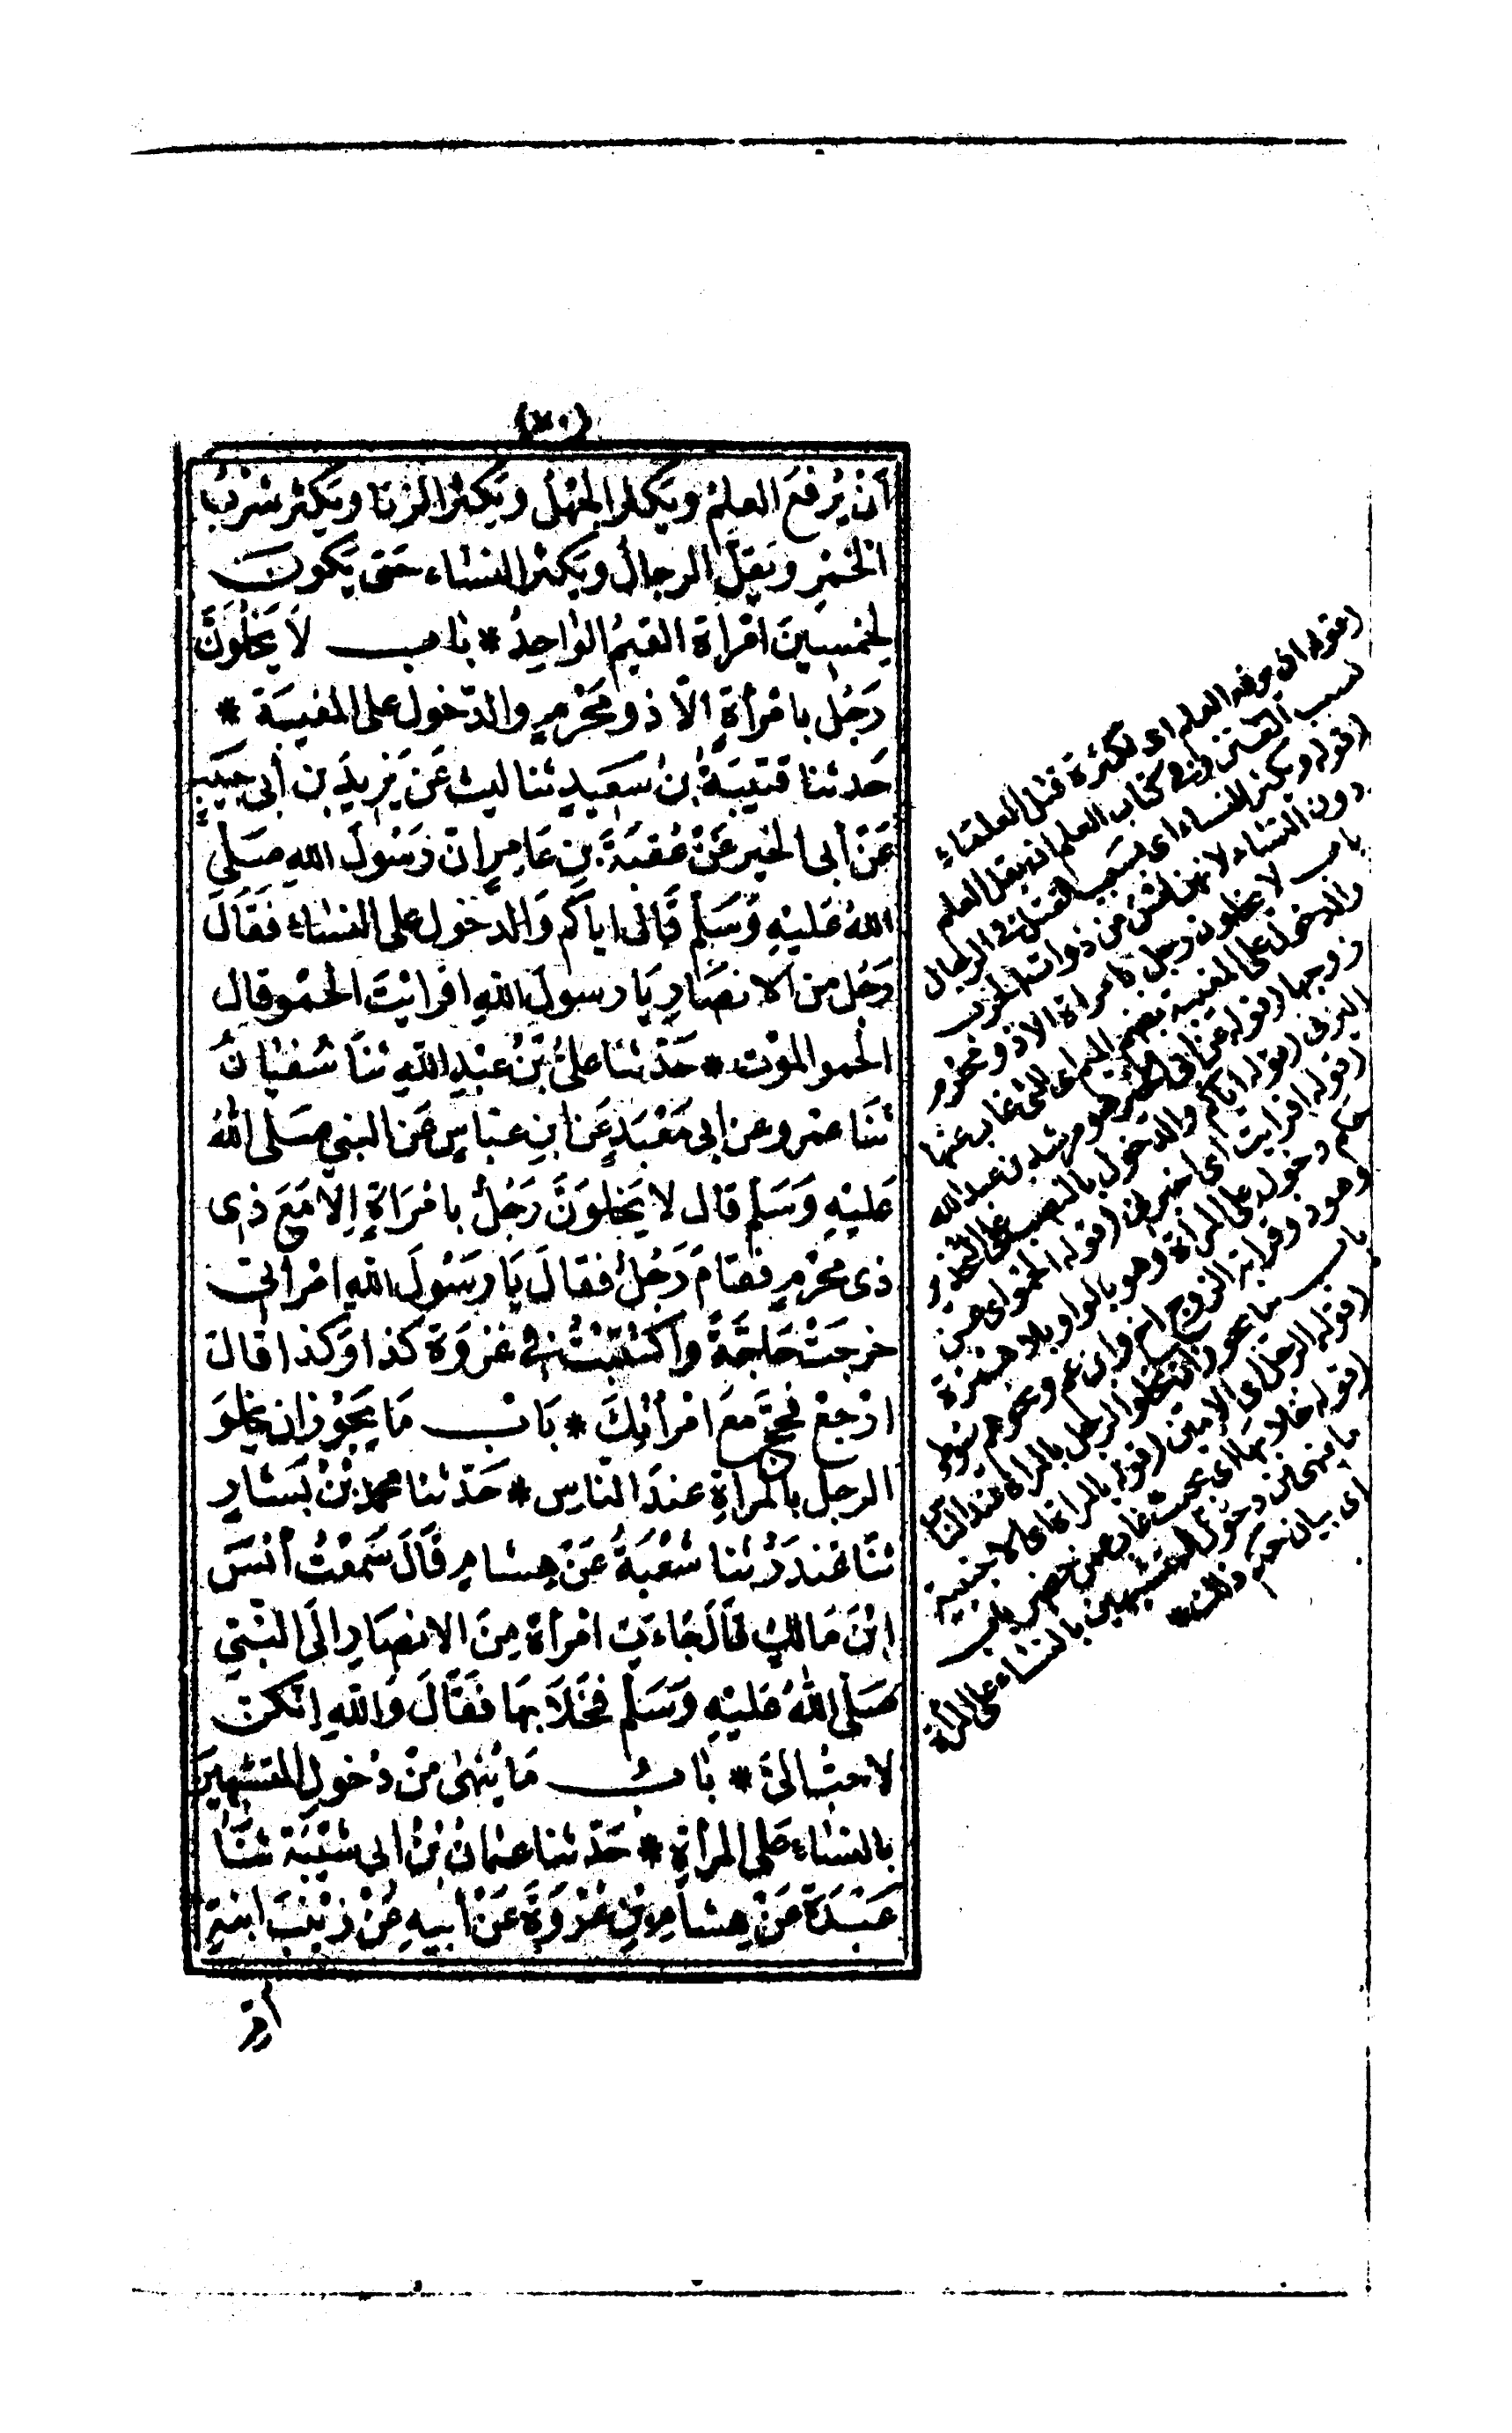 (٧٠)
أنْ يُرفعَ العلمُ ويَكثر الجَهْلُ ويَكثر الزنا ويَكثر شرْبُ
الخَمْرِ ويَقِلَّ الرجالُ ويَكثر النساء حَتى يَكونَ
لخمْسِينَ امْرأة القيمُ الواحِدُ * بابٌ لاَ يَخلُوَنَّ
رَجُل بامْرأةٍ الّا ذو مَحْرَمٍ والدّخول على المغيبَة *
حَدثنا قتيبَةُ بنُ سَعِيدٍ ثنا ليث عَن يَزيدَ بن أبى حبَيبٍ
عَنْ أبى الخير عَنْ عُقبَةَ بن عَامِرٍ انّ رَسُولَ الله صَلى
اللهُ عَليْهِ وَسَلم قَالَ اياكم وَالدخول على النساء فقَالَ
رَجُل من الانصَارِ يَا رسولَ اللهِ افرايْتَ الحمْو قال
الحمو الموْت * حَدّثنا علىُّ بْنُ عبْدِ اللهِ ثنَا سُفْيانُ
ثنَا عمْرو عن ابى مَعْبَدٍ عَن ابنِ عبّاسٍ عَن النبي صَلى اللهُ
عَليْهِ وَسَلم قال لا يَخلوَنَّ رَجُلٌ بامْرَاةٍ إلا مَعَ ذى
ذى محْرَمٍ فقامَ رَجُلٌ فقالَ يَا رَسُولَ اللهِ امْرأتى
خرجَتْ حَاجَّةً واكتُتِبْتُ فى غزوَة كذا وَكذا قالَ
ارْجعْ فحجَّ معَ امْرأتِكَ * بَابُ مَا يَجُوز ان يخلوَ
الرجلُ بالمراةِ عندَ الناسِ * حَدّثنا محمد بْنُ بَشارٍ
ثنَا غندَرٌ ثنا شعْبَةُ عَنْ هِشامٍ قَالَ سَمعْتُ أنسَ
ابْنَ مَالكٍ قالَ جَاءَت امْرأة مِنَ الانصَارِ الَى النّبيّ
صَلى اللهُ عَليْهِ وَسَلم فخَلاَ بهَا فقَالَ وَاللهِ انكن
لاحَبُّ الىّ * بَابُ مَا يُنهَىٰ منْ دُخولِ المتشبهينَ
بالنساء عَلى المرأةِ * حَدّثنا عثمانُ بْنُ أبى شَيْبَةَ ثنا
عَبْدَة عَنْ هِشامِ بْنِ عُرْوَةَ عَنْ أبيهِ عَنْ زيْنبَ ابنةِ
(قوله ان يرفع العلم اى بكثرة قتل العلماء
بسبب الفتن وفى كتاب العلم ان يقل العلم
(قوله ويكثر النساء اى بسبب القتل فى الرجال
دون النساء لانهن لسن من ذوات الحرب
باب لا يخلون رجل بامراة الا ذو محرم
والدخول على المغيبة بضم الميم اى التى غاب عنها
زوجها (قوله عن ابى الخير هو مرثد بن عبد الله
اليزنى (قوله اياكم والدخول بالنصب على التحذير
(قوله افرايت اى اخبرنى (قوله الحمو اى عن
حكم دخوله على المراة وهو بالواو بلا همزة
باب ما يجوز ان يخلو الرجل بالمراة عند الناس
(قوله الرجل اى الامين (قوله بالمراة اى الاجنبية
ما ينهى من دخول المتشبهين بالنساء على المراة
اى بيان تحريم ذلك *